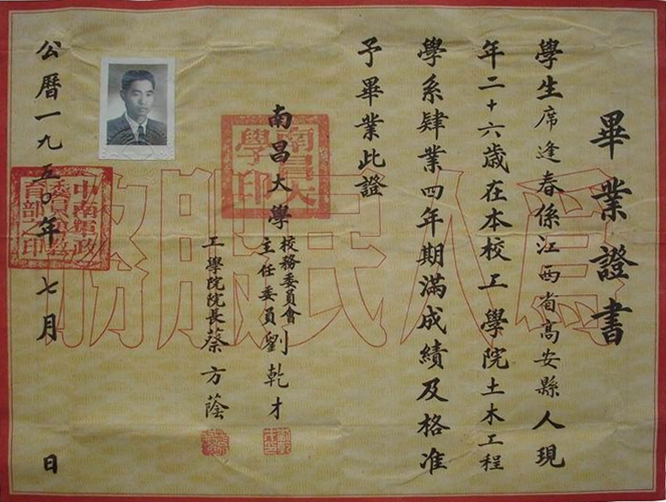 畢業證書
學生席逢春係江西省高安縣人現
年二十六歲在本校工學院土木工程
學系肄業四年期滿成績及格准
予畢業此證
南昌大學
校務委員會
主任委員劉乾才
工學院院長蔡方蔭
公曆一九五〇年七月 日
為人民服務
南昌大學印
中南軍政委員會教育部印